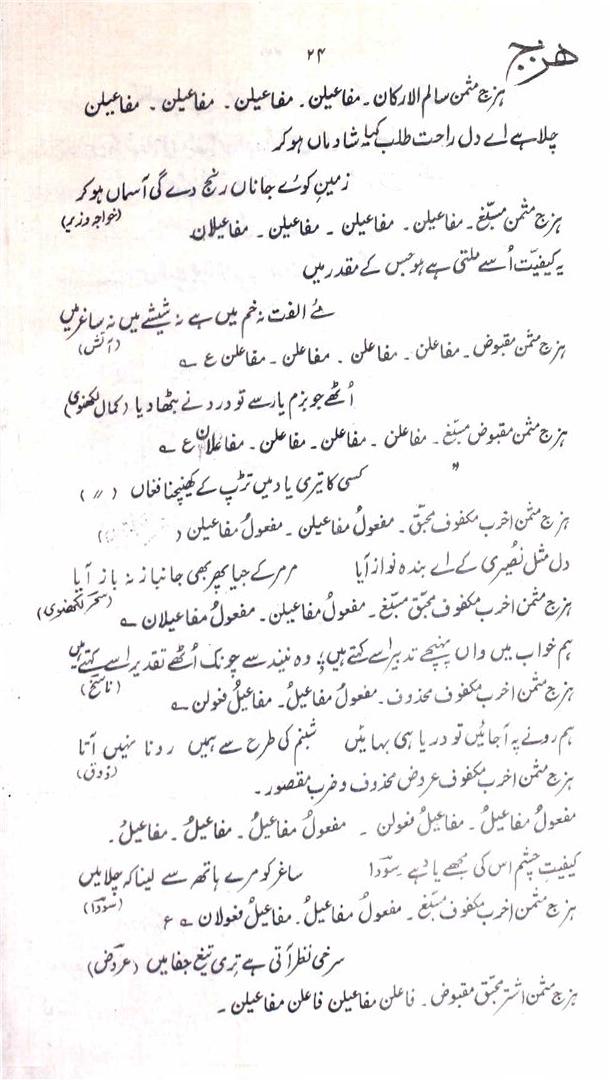 ۲۴
ھزج
ہزج مثمن سالم الارکان ۔ مفاعیلن ۔ مفاعیلن ۔ مفاعیلن ۔ مفاعیلن
چلا ہے اے دل راحت طلب کیا شادماں ہو کر
زمینِ کوئے جاناں رنج دے گی آسماں ہو کر
(خواجہ وزیر)
ہزج مثمن مسبّغ ۔ مفاعیلن ۔ مفاعیلن ۔ مفاعیلن ۔ مفاعیلان
یہ کیفیّت اُسے ملتی ہے ہو جس کے مقدر میں
مئے الفت نہ خم میں ہے نہ شیشے میں نہ ساغر میں
(آتش)
ہزج مثمن مقبوض ۔ مفاعلن ۔ مفاعلن ۔ مفاعلن ۔ مفاعلن ع ؎
اُٹھے جو بزم یار سے تو درد نے بٹھا دیا (کمال لکھنوی)
ہزج مثمن مقبوض مسبّغ ۔ مفاعلن ۔ مفاعلن ۔ مفاعلن ۔ مفاعلان ع ؎
کسی کا تیری یاد میں تڑپ کے کھینچنا فغاں ( // )
ہزج مثمن اخرب مکفوف مخبّق ۔ مفعولُ مفاعیلن ۔ مفعولُ مفاعیلن
دل مثل نصیری کے اے بندہ نواز آیا مر مر کے جیا پھر بھی جانباز نہ باز آیا
(سحر لکھنوی)
ہزج مثمن اخرب مکفوف مخبّق مسبّغ ۔ مفعولُ مفاعیلن ۔ مفعولُ مفاعیلان ؎
ہم خواب میں واں پہنچے تدبیر اسے کہتے ہیں؛ وہ نیند سے چونک اُٹھے تقدیر اسے کہتے ہیں
(ناسخ)
ہزج مثمن اخرب مکفوف محذوف ۔ مفعولُ مفاعیلُ ۔ مفاعیلُ فعولن ؎
ہم رونے پہ آ جائیں تو دریا ہی بہائیں شبنم کی طرح سے ہمیں رونا نہیں آتا
(ذوق)
ہزج مثمن اخرب مکفوف عروض محذوف و ضرب مقصور ۔
مفعولُ مفاعیلُ ۔ مفاعیلُ فعولن ۔ مفعولُ مفاعیلُ ۔ مفاعیلُ ۔ مفاعیلُ ۔
کیفیتِ چشم اس کی مجھے یاد ہے سودا ساغر کو مرے ہاتھ سے لینا کہ چلا میں
(سودا)
ہزج مثمن اخرب مکفوف مسبّغ ۔ مفعولُ مفاعیلُ ۔ مفاعیلُ فعولان ؎ ع
سرخی نظر آتی ہے تری تیغ جفا میں (عروض)
ہزج مثمن اشتر مخبّق مقبوض ۔ فاعلن مفاعیلن فاعلن مفاعیلن ۔